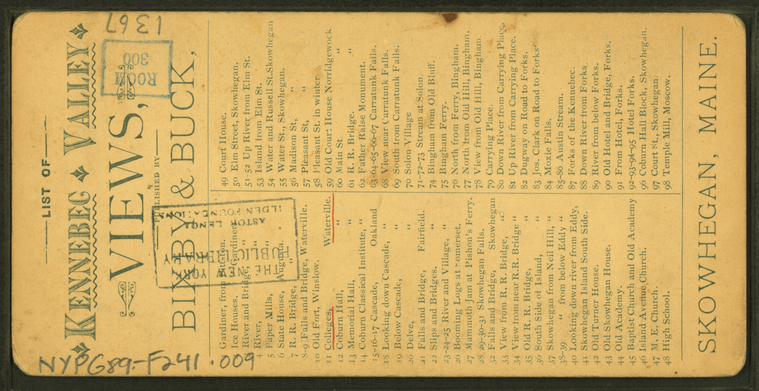 LIST OF
KENNEBEC VALLEY
VIEWS,
PUBLISHED BY
BIXBY & BUCK,
1367
ROOM
300
THE NEW YORK
PUBLIC LIBRARY
ASTOR, LENOX
TILDEN FOUNDATION
Gardiner, from
Ice Houses, Gardiner
River and Bridge,
4 River, "
5 Paper Mills, "
6 State House, Augusta.
7 R. R. Bridge, "
8-9 Falls and Bridge, Waterville.
10 Old Fort, Winslow.
11 Colleges, Waterville.
12 Coburn Hall, "
13 Memorial Hall, "
14 Coburn Classical Institute, "
15-16-17 Cascade, Oakland
18 Looking down Cascade, "
19 Below Cascade, "
20 Delve,
21 Falls and Bridge, Fairfield.
22 Slips and Bridges, "
23-24-25 River and Village, "
26 Booming Logs at Somerset.
27 Mammoth Jam at Pishon's Ferry.
28-29-30-31 Skowhegan Falls.
32 Falls and Bridge, Skowhegan
33 View from R. R. Bridge, "
34 View from near R.R. Bridge "
35 Old R. R. Bridge, "
36 South Side of Island, "
37 Skowhegan from Neil Hill, "
38-39 " from below Eddy "
40 Looking down river from Eddy,
41 Skowhegan Island South Side.
42 Old Turner House.
43 Old Skowhegan House.
44 Old Academy.
45 Baptist Church and Old Academy
46 Island Avenue Church.
47 M. E. Church.
48 High School.
49 Court House.
50 Elm Street, Skowhegan.
51-52 Up River from Elm St.
53 Island from Elm St.
54 Water and Russell St. Skowhegan
55 Water St., Skowhegan.
56 Madison St, "
57 Pleasant St, "
58 Pleasant St. in winter
59 Old Court House Norridgewock
60 Main St "
61 R. R. Bridge. "
62 Father Ralse Monument.
63-64-65-66-67 Carratunk Falls.
68 View near Carratunk Falls.
69 South from Carratunk Falls.
70 Solon Village
71-72-73 Stream at Solon.
74 Bingham from Old Bluff.
75 Bingham Ferry.
76 North from Ferry, Bingham.
77 North from Old Hill, Bingham.
78 View from Old Hill, Bingham
79 Carrying Place.
80 Down River from Carrying Place.
81 Up River from Carrying Place.
82 Dugway on Road to Forks.
83 Jos. Clark on Road to Forks
84 Moxie Falls.
85-86 Austin Stream.
87 Forks of the Kennebec.
88 Down River from Forks.
89 River from below Forks.
90 Old Hotel and Bridge, Forks.
91 From Hotel, Forks.
92-93-94-95 Hotel Forks.
96 Coburn Hall Block, Skowhegan.
97 Court St., Skowhegan.
98 Temple Mill, Moscow.
SKOWHEGAN, MAINE.
NYPG89-F241.009